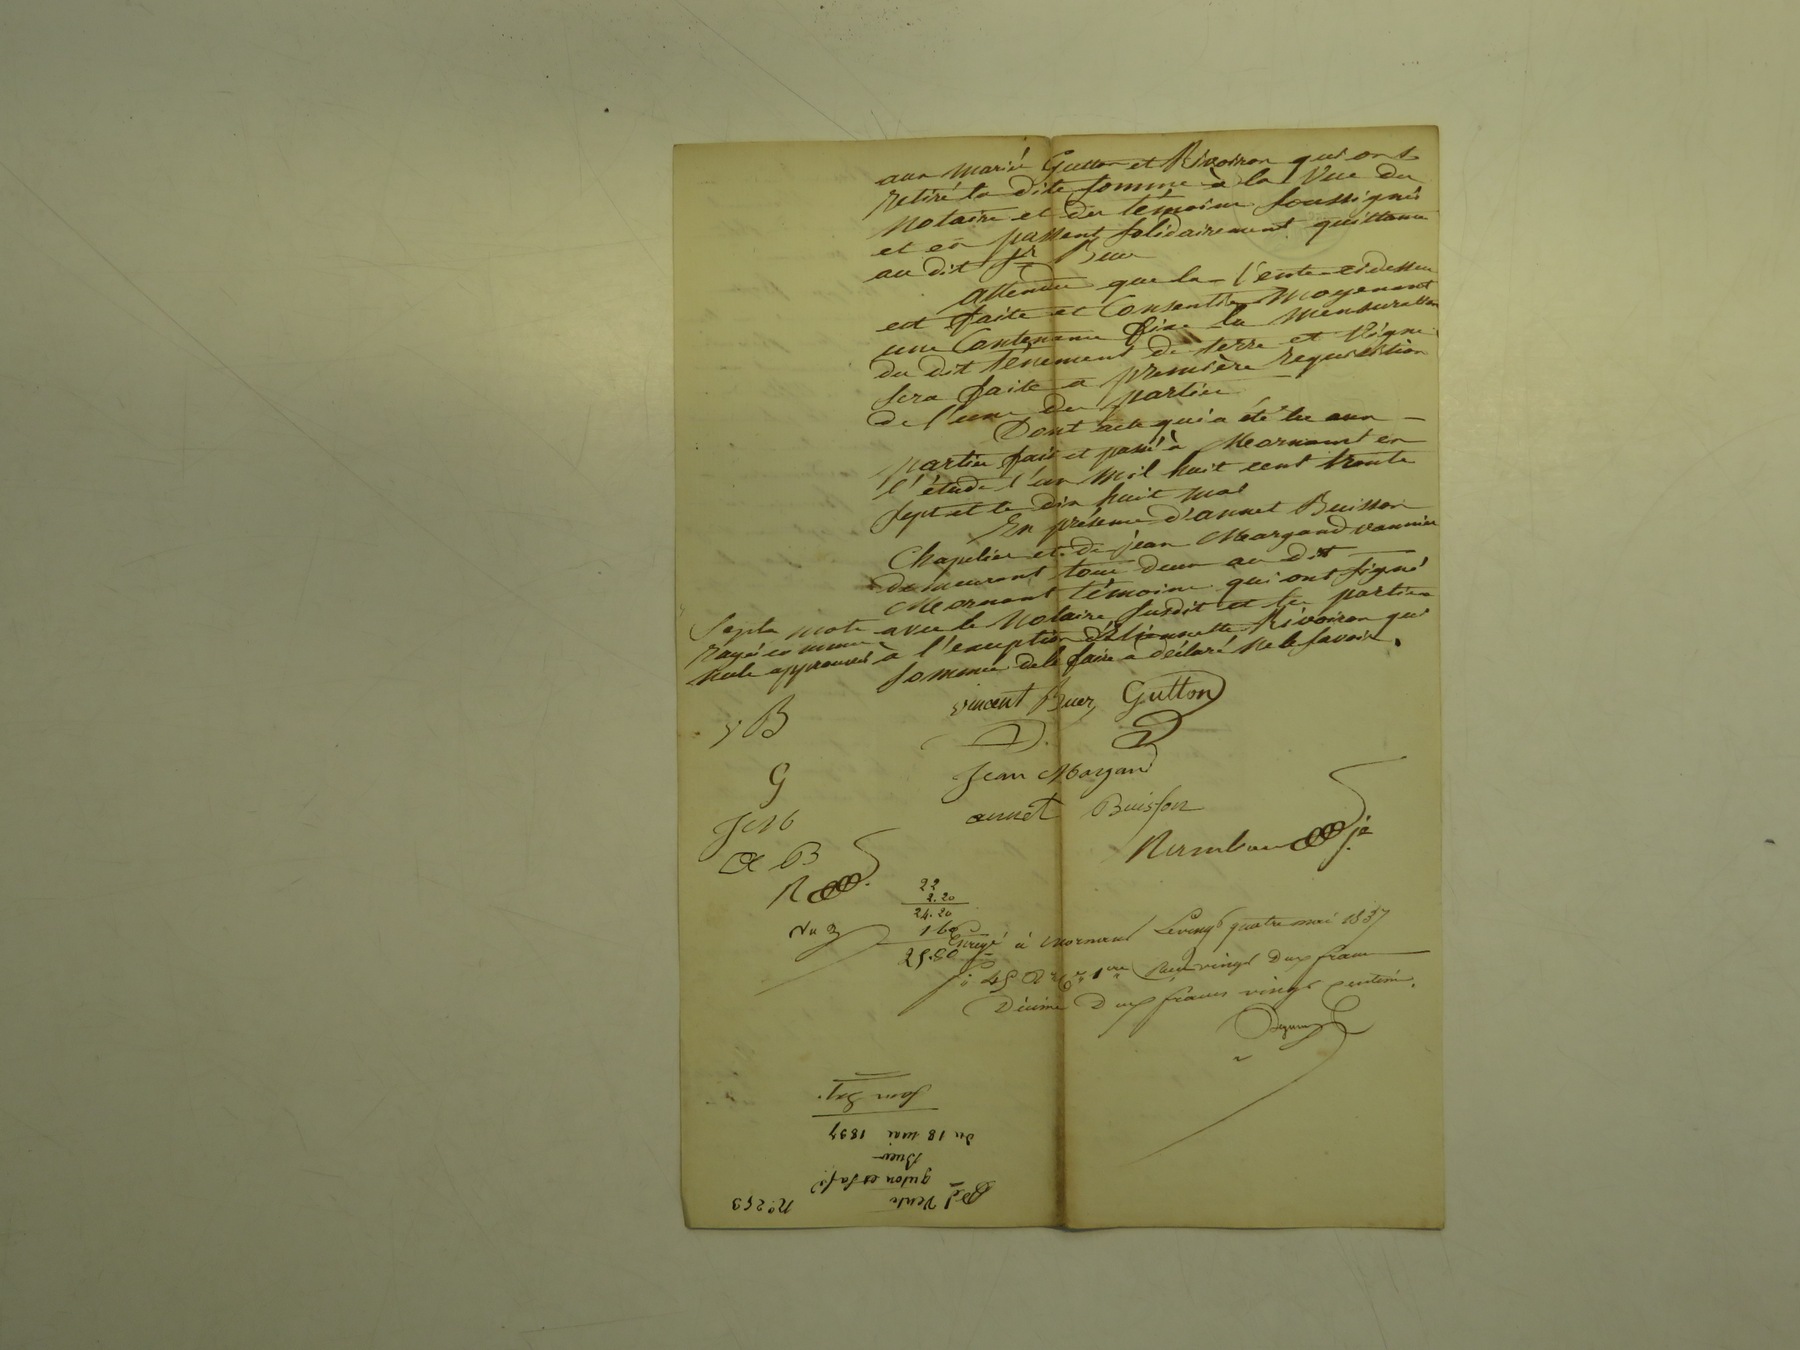 aux mariés Gutton et Rivoiron qui ont
retiré la dite somme à la vue du
Notaire et des témoins soussignés
et en passent solidairement quittance
au dit Sr Buer
attendu que la Vente ci dessus
est faite et Consentie Moyenant
une Contenance fixe la mensuration
du dit tènement de terre et Vigne
sera faite a première requisition
de l'une des parties
Dont acte qui a été lu aux
parties fait et passé à Mornant en
l'étude l'an Mil huit cent trente
sept et le dix huit mai
En présence d'annet Buisson
Chapelier et de jean Margand vannier
demeurant tous deux au dit
Mornant témoins qui ont signé
avec le Notaire susdit et les parties
à l'exception d'Etiennette Rivoiron qui
sommée de le faire a déclaré ne le savoir.
Sept mots
rayés comme
nuls approuvés
vincent Buer Gutton
v B
Jean Morgand
G
annet Buisson
J M
a B
R
22
2.20
24.20
1.60
25.80
Enregé à Mornant Le vingt quatre mai 1837
fo 45 Ro Ce 1ere Reçu vingt Deux francs
Décime Deux francs vingt centimes.
No 253
Vente
guton et sa fe
Buer
du 18 mai 1837